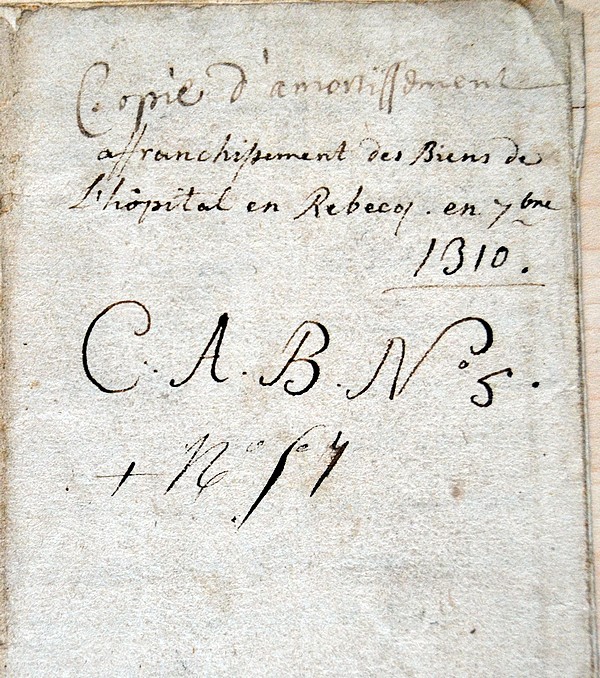 Copie d'amortissement
affranchissement des Biens de
L'hôpital en Rebecq. en 7bre
1310.
C. A. B. No 5.
+ No